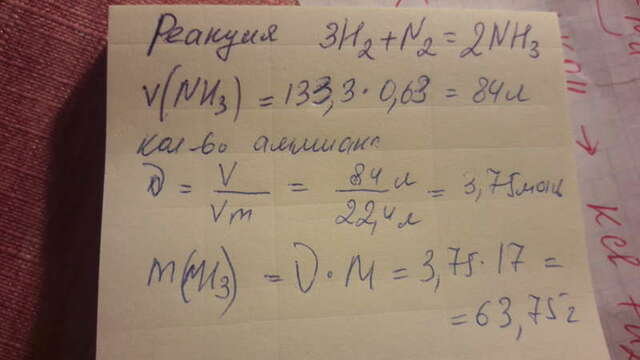 Реакция 3H₂+N₂=2NH₃
V(NH₃) = 133,3·0,63 = 84л
кол-во аммиака
ν = V/Vm = 84л/22,4л = 3,75моль
m(NH₃) = ν·M = 3,75·17 =
= 63,75г
KCl